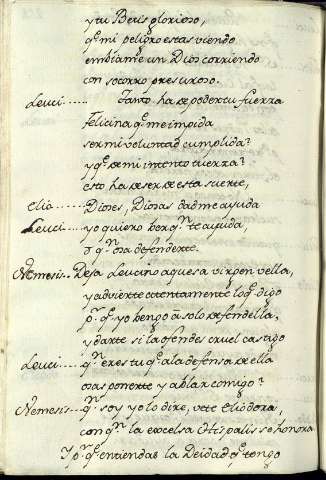 y tu Betis glorioso,
q̃. mi peligro estas viendo
embiame un Dios corriendo
con socorro presuroso.
Leuci..... Tanto ha de poder tu fuerza
Felicina q̃. me impida
ser mi voluntad cumplida?
y q̃. de mi intento tuerza?
esto ha de ser de esta suerte,
Elio..... Dioses, Diosas dadme ayuda
Leuci..... yo quiero ber qⁿ. te ayuda,
o qⁿ. osa defenderte.
Nemesis.. Dexa Leucino aquesa virgen vella,
y advierte atentamente lo q̃. digo
pʳ. q̃. yo bengo a solo defendella,
y darte si la ofendes cruel castigo
Leuci..... qⁿ. eres tu q̃. a la defensa de ella
osas ponerte y ablar comigo?
Nemesis.. qⁿ. soy yo lo dire, vete Eliodora,
con qⁿ. la excelsa Hispalis se honora
Y pʳ. q̃. entiendas la Deidad q̃. tengo